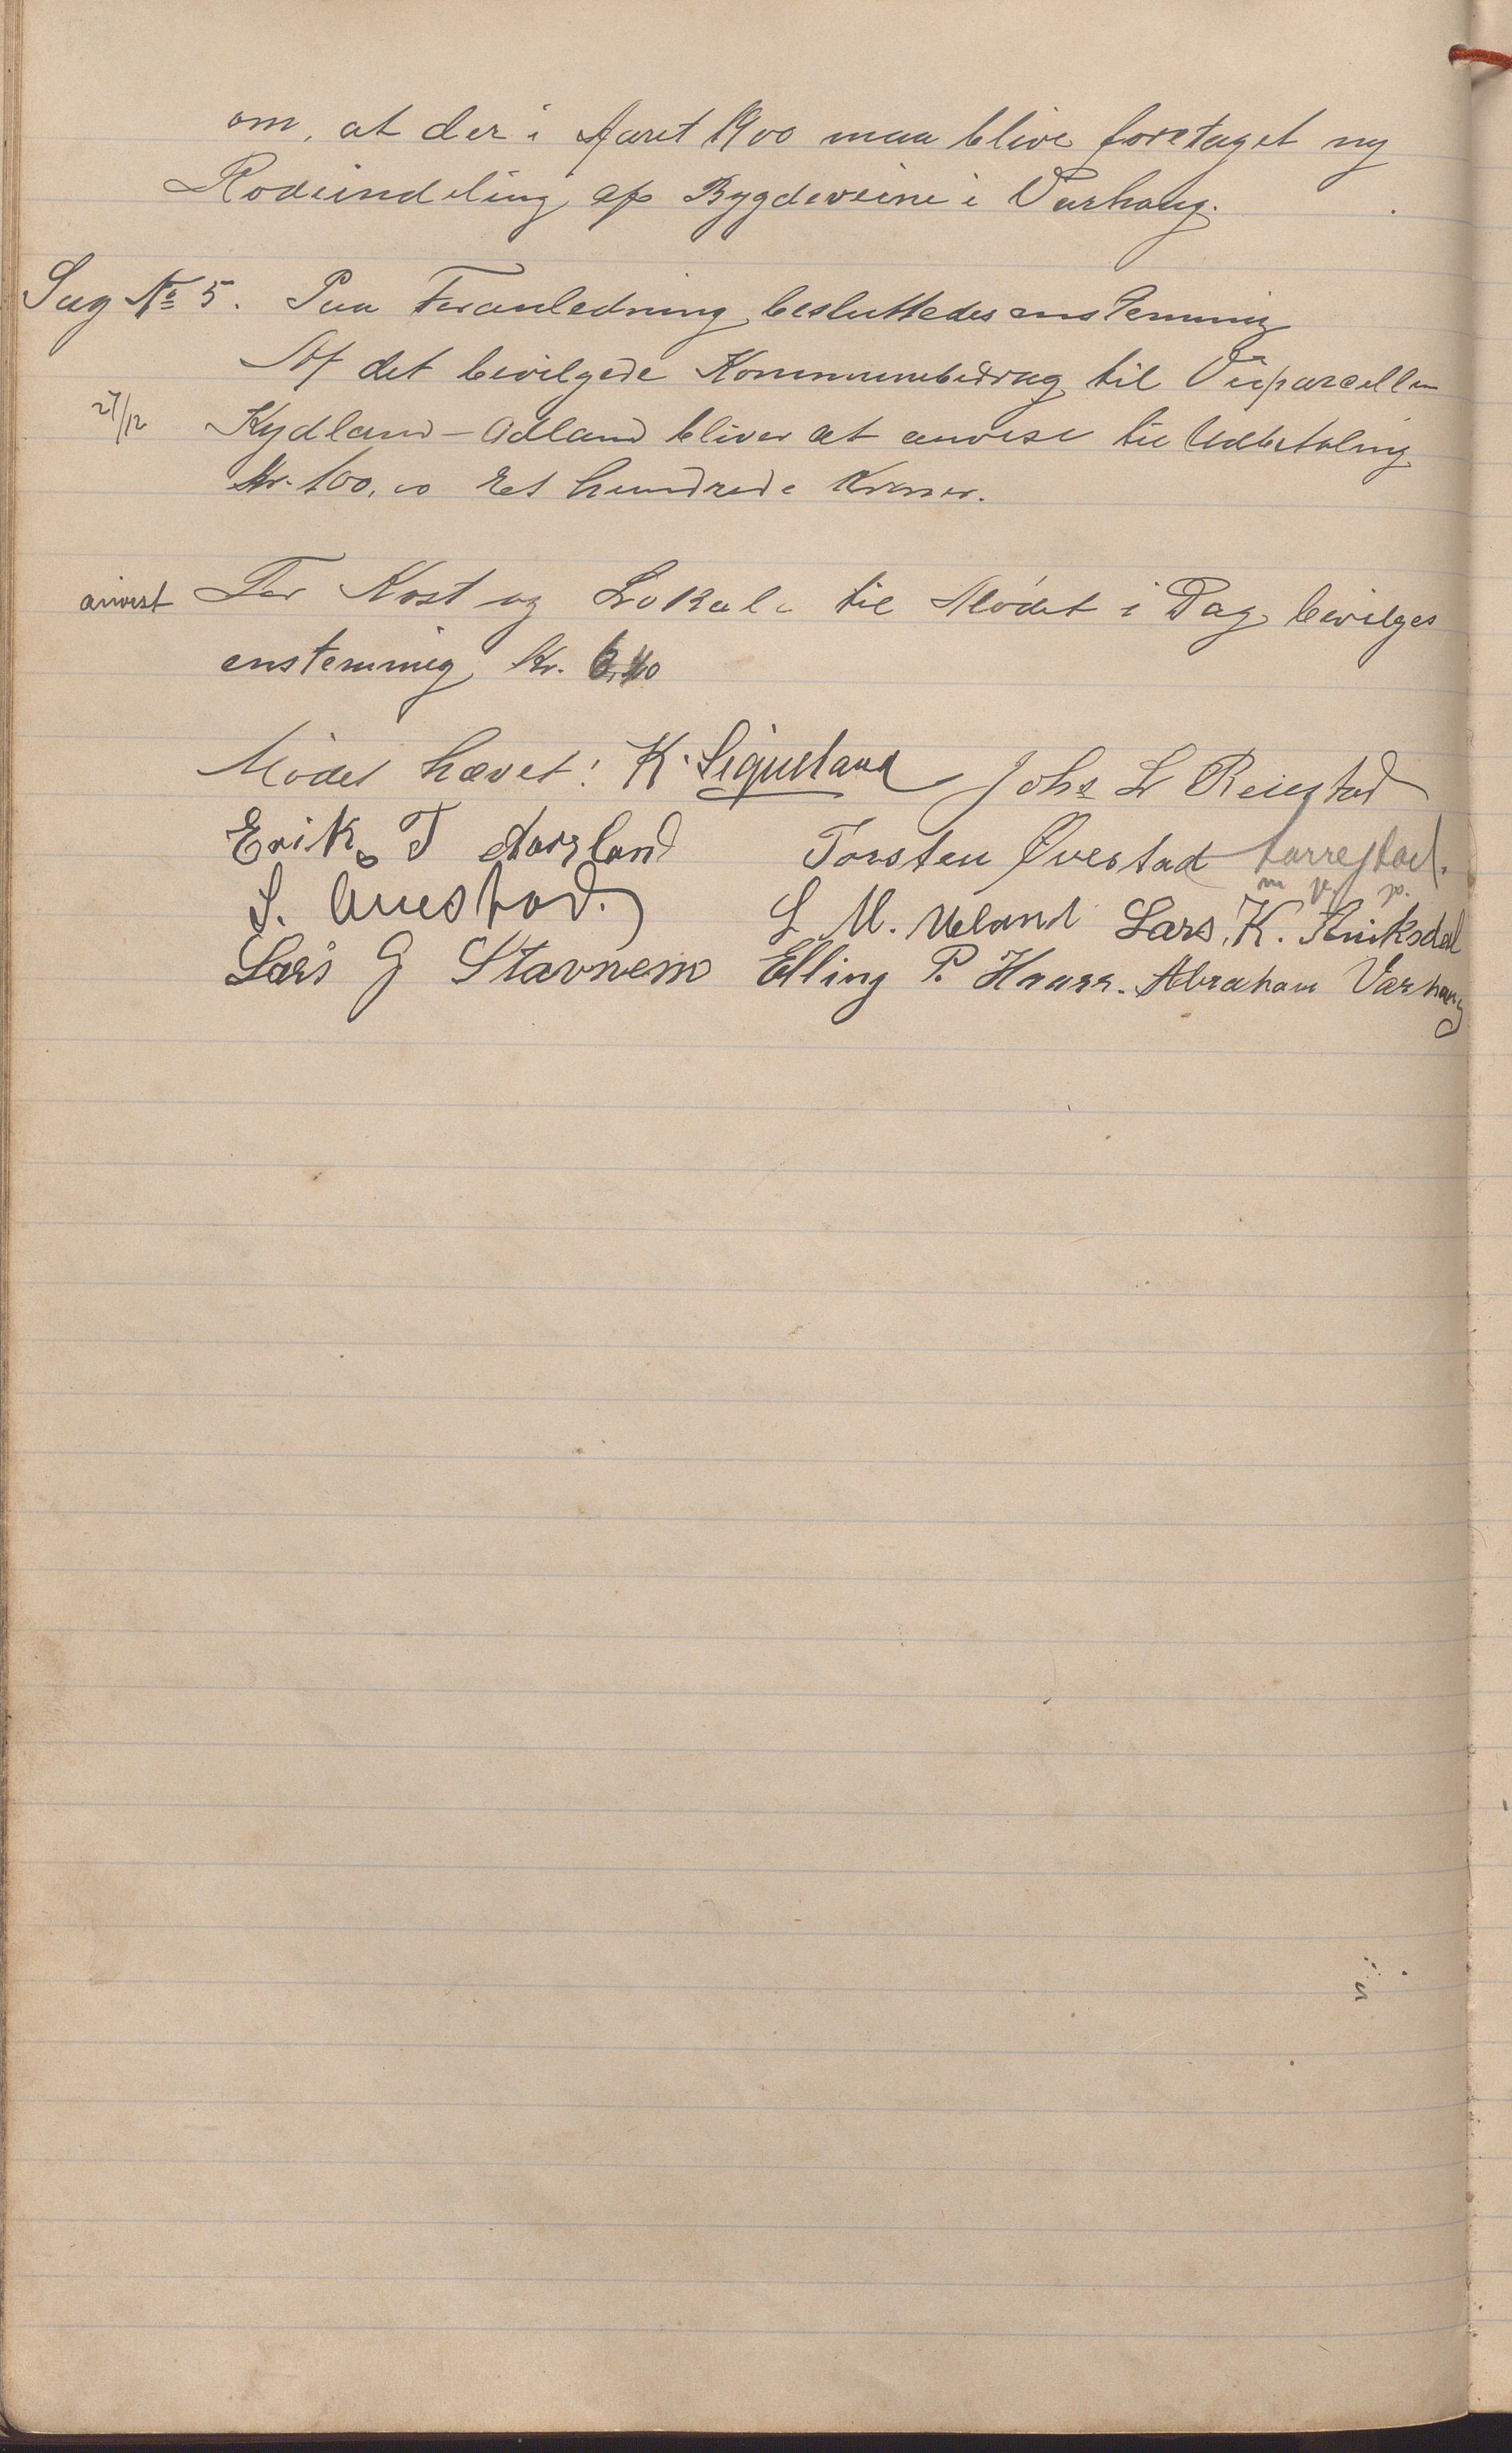 om, at der i Aaret 1900 maa blive foretaget ny
Rodeinddeling af Bygdeveine i Varhaug.
Sag No 5. Paa Foranledning besluttedes enstemmig
Af det bevilgede Kommunebidrag til Veiparcellen
27/12 Kydland-Adland bliver at anvise til Udbetaling
Kr. 100,00 Et hundrede Kroner.
anvist For Kost og Lokale til Mødet i Dag bevilges
enstemmig Kr. 6,40
Mødet hævet! K. Sigueland Johs L Reiestad
Erik T Aarsland Torsten Øvestad Larrestad.
S. Auestad. L M. Ueland Lars K. Aniksdal
Lars G Stavnem Elling P. Haarr. Abraham Varhaug